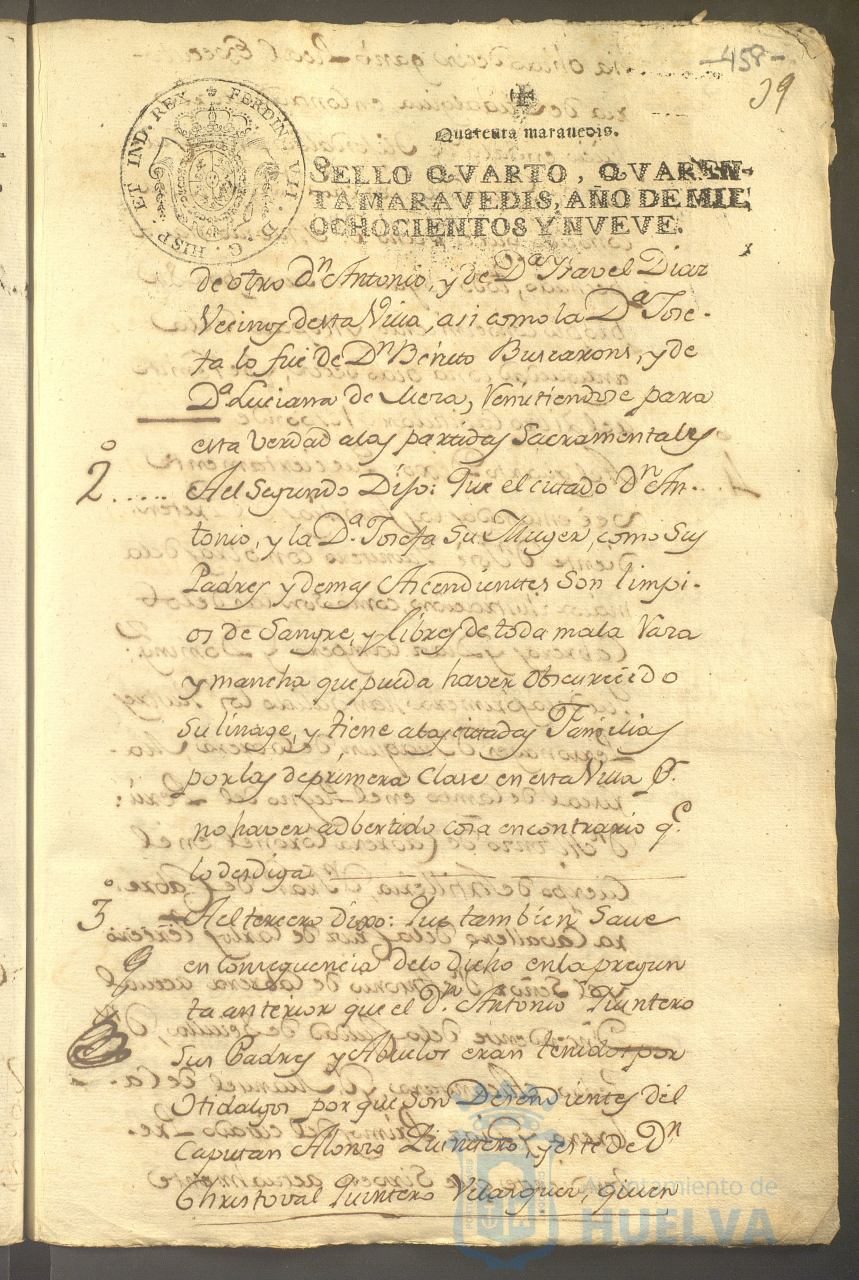 -458-
39
HISP. ET IND. REX FERDIN. VII. D. G.
Quarenta maravedis.
SELLO QVARTO, QVAREN-
TA MARAVEDIS, AÑO DE MIL
OCHOCIENTOS Y NVEVE.
de otro Dn Antonio, y de Da Ysavel Diaz
Vecinos desta Villa, asi como la Da Jose-
fa lo fue de Dn Benito Buscarons, y de
Da Luciana de Mora, Remitiendose para
esta verdad a las partidas Sacramentales
2o..... Al Segundo Dijo: Que el citado Dn An-
tonio, y la Da Josefa Su Muger, como Sus
Padres y demas Ascendientes Son limpi-
os de Sangre, y libres de toda mala Raza
y mancha que pueda haver obscurecido
Su linage, y tiene a las citadas Familias
por las de primera Clase en esta Villa Pr.
no haver adbertido cosa en contrario qe
lo desdiga
3o Al tercero dixo: Que tambien Save
en Consequencia de lo Dicho en la pregun
ta anterior que el Dn Antonio Quintero
Sus Padres y Abuelos eran tenidos por
Hidalgos por que Son Decendientes del
Capitan Alonzo Quintero, y este de Dn
Christoval Quintero Velasquez, quien
Ayuntamiento de
HUELVA